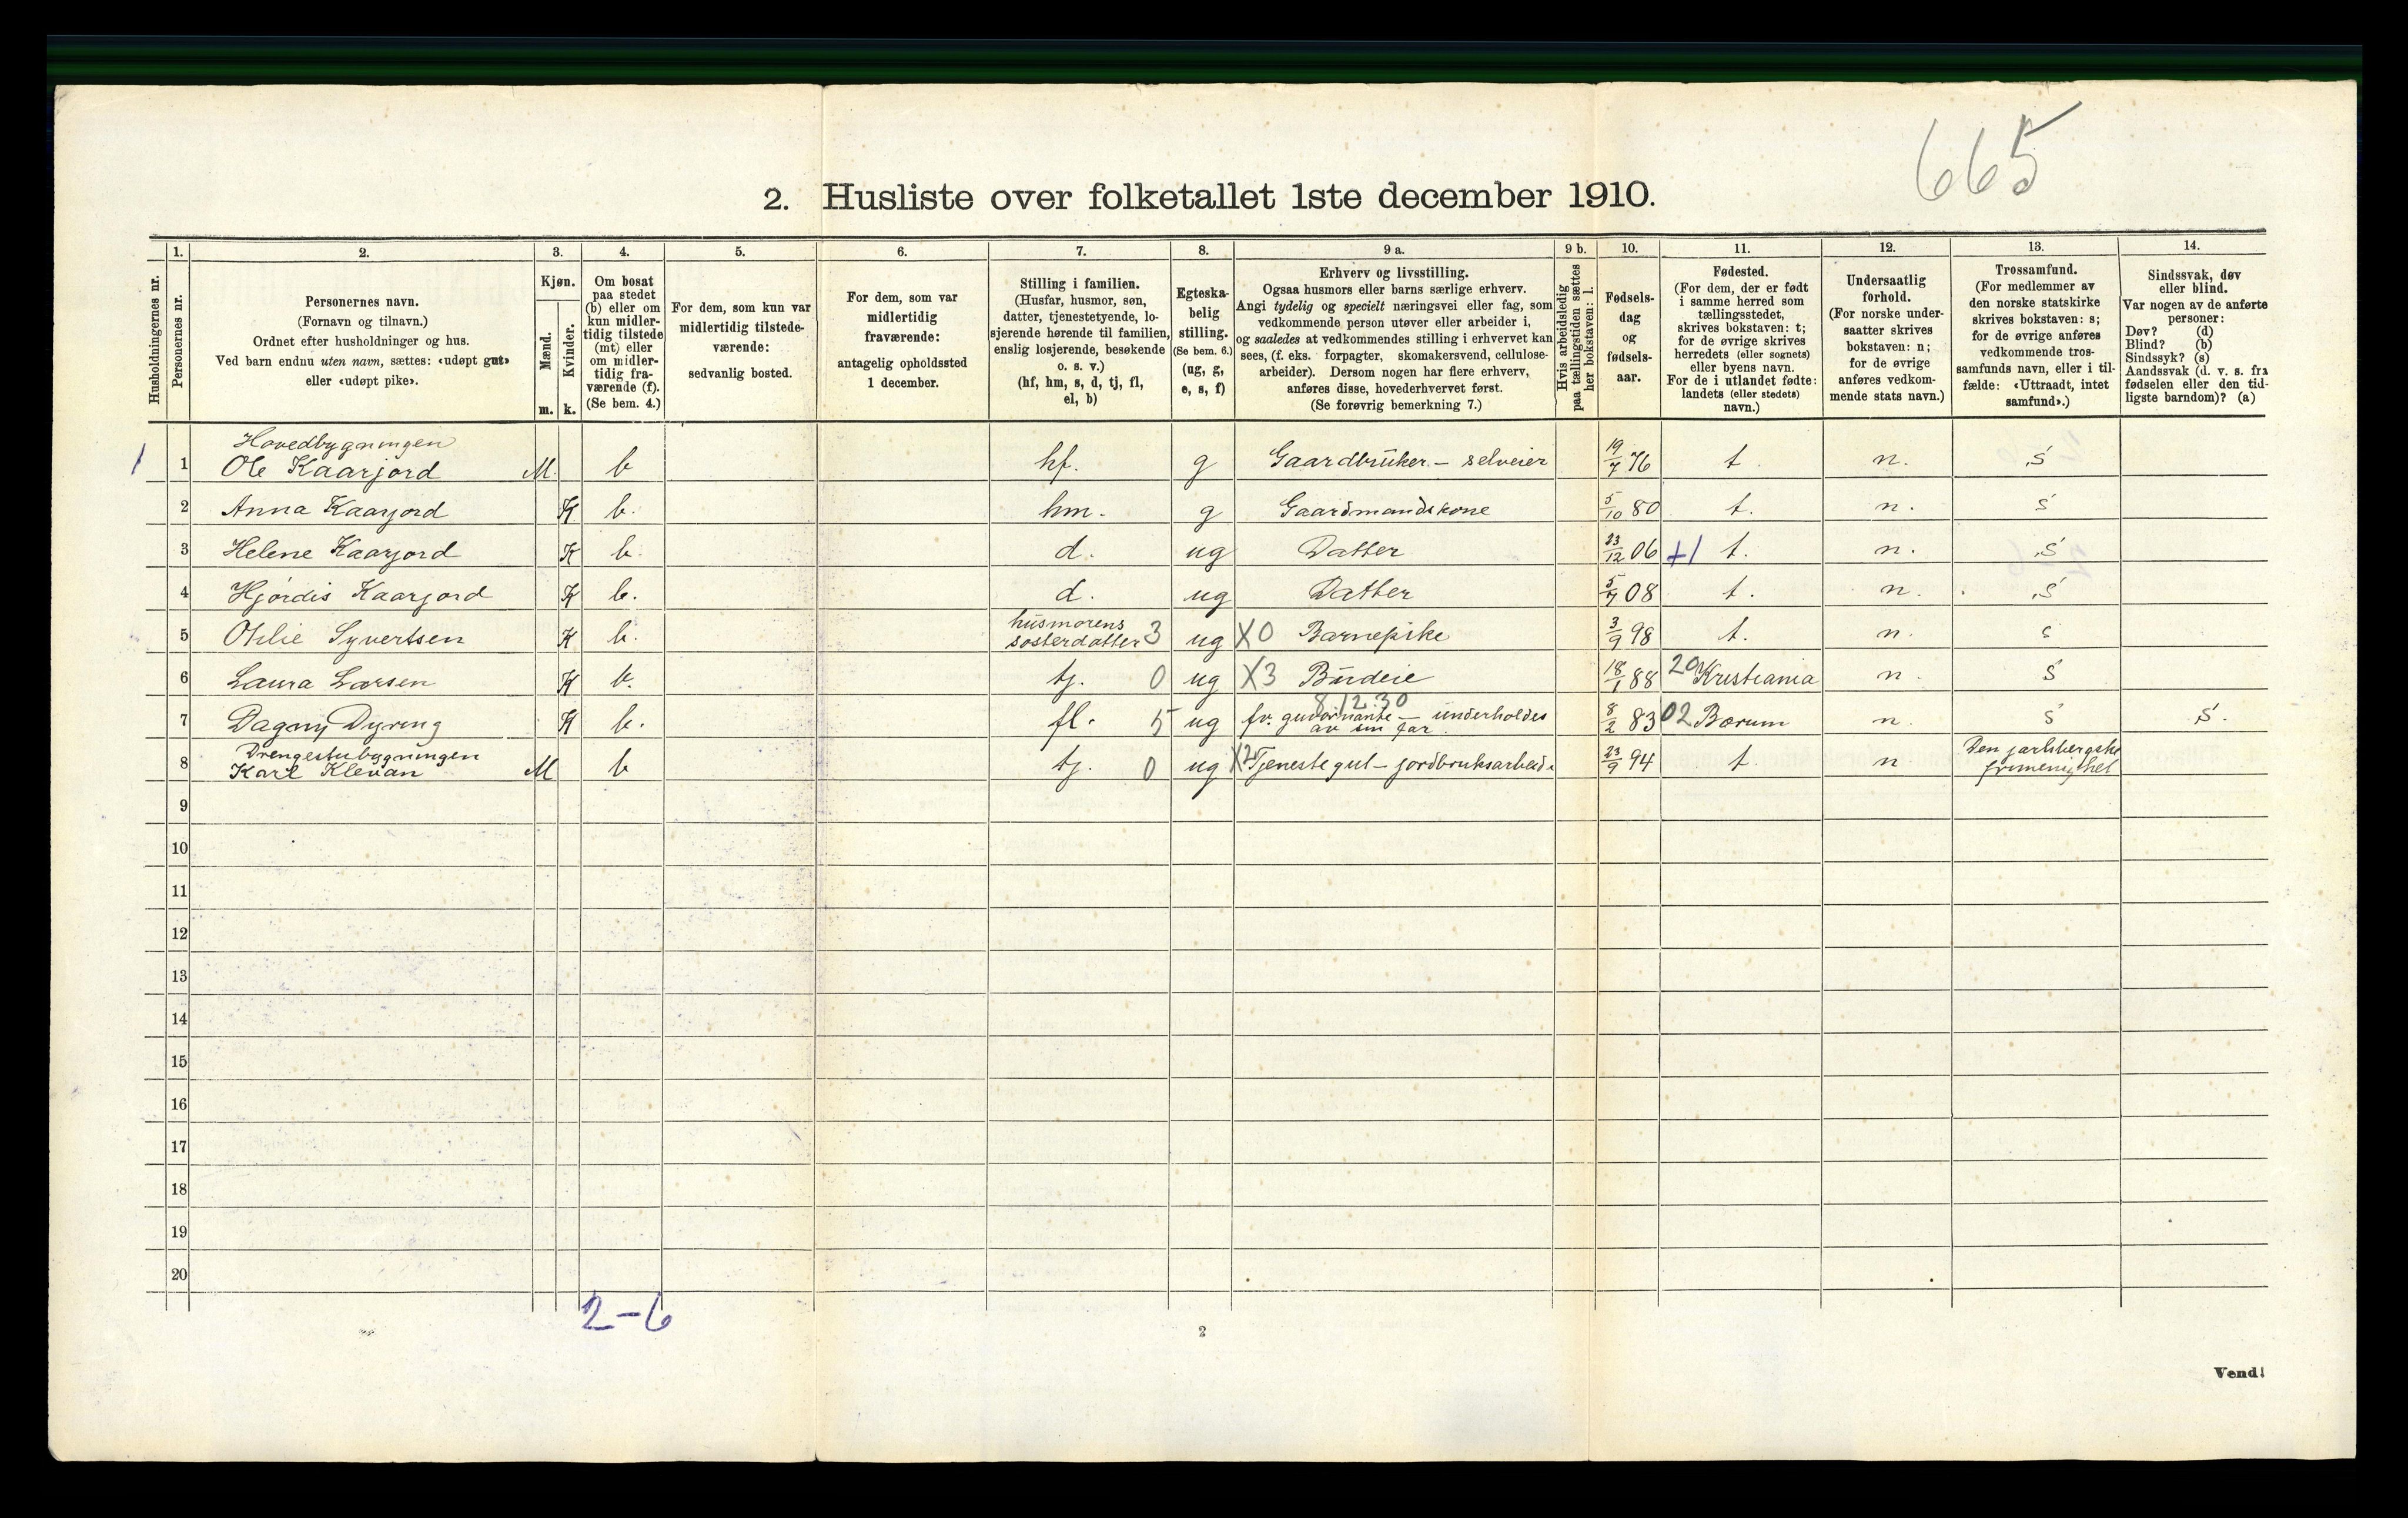 665
2. Husliste over folketallet 1ste december 1910.
Husholdningernes nr.
1.
Personernes nr.
2.
Personernes navn.
(Fornavn og tilnavn.)
Ordnet efter husholdninger og hus.
Ved barn endnu uten navn, sættes: «udøpt gut»
eller «udøpt pike».
3.
Kjøn.
Mænd.
m.
Kvinder.
k.
4.
Om bosat
paa stedet
(b) eller om
kun midler-
tidig tilstede
(mt) eller
om midler-
tidig fra-
værende (f).
(Se bem. 4.)
5.
For dem, som kun var
midlertidig tilstede-
værende:
sedvanlig bosted.
6.
For dem, som var
midlertidig
fraværende:
antagelig opholdssted
1 december.
7.
Stilling i familien.
(Husfar, husmor, søn,
datter, tjenestetyende, lo-
sjerende hørende til familien,
enslig losjerende, besøkende
o. s. v.)
(hf, hm, s, d, tj, fl,
el, b)
8.
Egteska-
belig
stilling.
(Se bem. 6.)
(ug, g,
e, s, f)
9 a.
Erhverv og livsstilling.
Ogsaa husmors eller barns særlige erhverv.
Angi tydelig og specielt næringsvei eller fag, som
vedkommende person utøver eller arbeider i,
og saaledes at vedkommendes stilling i erhvervet kan
sees, (f. eks. forpagter, skomakersvend, cellulose-
arbeider). Dersom nogen har flere erhverv,
anføres disse, hovederhvervet først.
(Se forøvrig bemerkning 7.)
9 b.
Hvis arbeidsledig
paa tællingstiden sættes
her bokstaven: l.
10.
Fødsels-
dag
og
fødsels-
aar.
11.
Fødested.
(For dem, der er født
i samme herred som
tællingsstedet,
skrives bokstaven: t;
for de øvrige skrives
herredets (eller sognets)
eller byens navn.
For de i utlandet fødte:
landets (eller stedets)
navn.)
12.
Undersaatlig
forhold.
(For norske under-
saatter skrives
bokstaven: n;
for de øvrige
anføres vedkom-
mende stats navn.)
13.
Trossamfund.
(For medlemmer av
den norske statskirke
skrives bokstaven: s;
for de øvrige anføres
vedkommende tros-
samfunds navn, eller i til-
fælde: «Uttraadt, intet
samfund».)
14.
Sindssvak, døv
eller blind.
Var nogen av de anførte
personer:
Døv? (d)
Blind? (b)
Sindssyk? (s)
Aandssvak (d. v. s. fra
fødselen eller den tid-
ligste barndom)? (a)
Hovedbygningen
1 1 Ole Kaarjord M. b hf. g Gaardbruker - selveier 19/7 76 t. n. s
2 Anna Kaarjord K b. hm. g Gaardmandskone 5/10 80 t. n. s
3 Helene Kaarjord K b d. ug Datter 23/12 06 +1 t. n. s
4 Hjördis Kaarjord K b. d. ug Datter 5/7 08 t. n. s
5 Othlie Syvertsen K b. husmorens
søsterdatter 3 ug X0 Barnepike 3/9 98 t. n. s
6 Laura Larsen K b. tj. 0 ug X3 Budeie 18/1 88 20 Kristiania n. s
8.12.30
7 Dagny Dyring K b. fl. 5 ug fv. guvernante - underholdes
av sin far. 8/2 83 02 Bærum n. s s.
Drengestubygningen
8 Karl Klevan M b tj. 0 ug X2 Tjenestegut - jordbruksarbeid. 23/9 94 t n Den jarlsbergske
frimenighet
9
10
11
12
13
14
15
16
17
18
19
20
2-6
2
Vend!